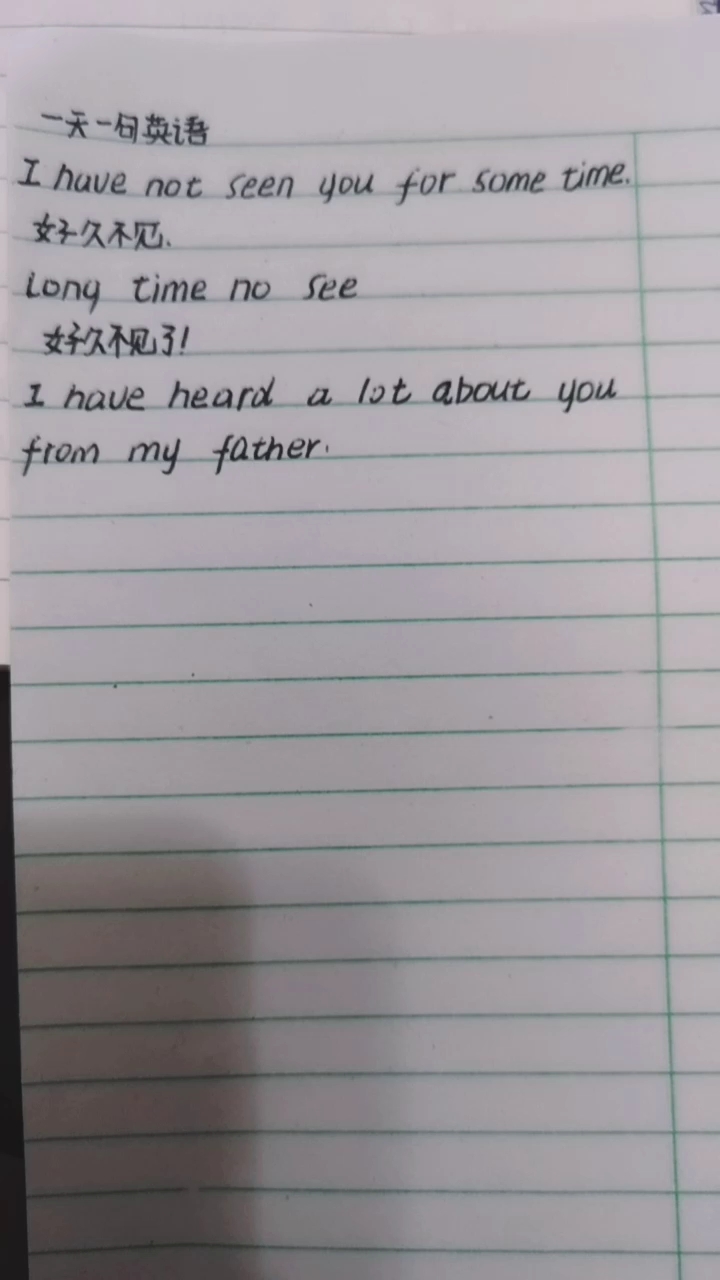 一天一句英语
I have not seen you for some time.
好久不见.
Long time no see
好久不见了!
I have heard a lot about you
from my father.